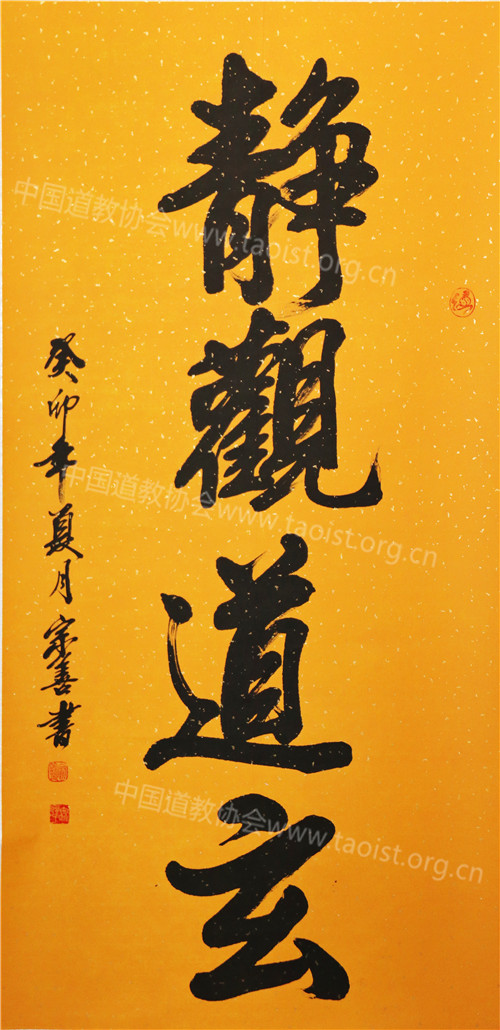 静觀道玄
癸卯年夏月宗善書
中国道教协会www.taoist.org.cn
中国道教协会www.taoist.org.cn
中国道教协会www.taoist.org.cn